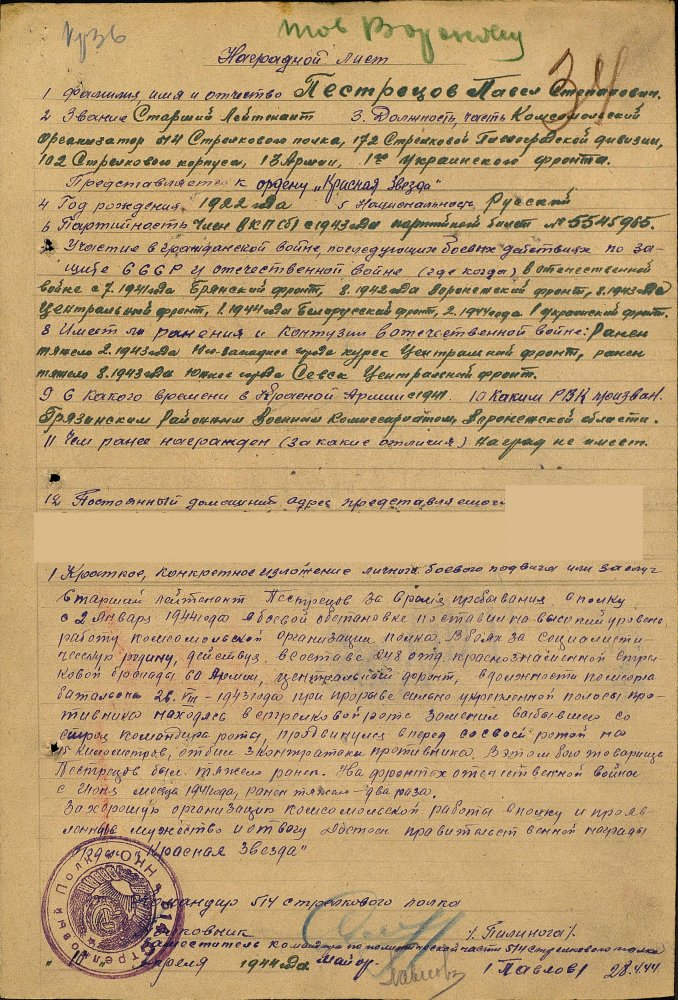 тов Воронову
Наградной лист
1 Фамилия, имя и отчество Пестрецов Павел Степанович.
2 Звание Старший Лейтенант 3. Должность, часть Комсомольский
организатор 514 Стрелкового полка, 172 Стрелковой Павлоградской дивизии,
102 Стрелкового корпуса, 13 Армии, 1го Украинского фронта.
Представляется к ордену „Красная Звезда"
4 Год рождения 1922 года 5 Национальность Русский
6 Партийность Член ВКП(б) с 1943 года партийный билет № 5545965.
7 Участие в гражданской войне, последующих боевых действиях по за-
щите СССР и отечественной войне (где когда) В отечественной
войне с 7.1941 года Брянский фронт, 8.1942 года Воронежский фронт, 2.1943 года
Центральный фронт, 1.1944 года Белорусский фронт, 2.1944 года 1 Украинский фронт.
8 Имеет ли ранения и контузии в отечественной войне: Ранен
тяжело 2.1943 года Ю-западнее города Курск Центральный фронт, ранен
тяжело 8.1943 года Южнее города Севск Центральный фронт.
9 С какого времени в Красной Армии с 1941 10 Каким РВК призван.
Грязинским Районным Военным Комиссариатом, Воронежской области.
11 Чем ранее награжден (за какие отличия) Наград не имеет.
12 Постоянный домашний адрес представляемого
1 Краткое, конкретное изложение личного боевого подвига или заслуг
Старший лейтенант Пестрецов за время пребывания в полку
с 2 Января 1944 года в боевой обстановке поставил на высокий уровень
работу комсомольской организации полка. В боях за социалисти-
ческую родину, действуя, в составе 248 отд. краснознаменной стрел
ковой бригады 60 Армии, центральный фронт, в должности комсорга
батальона 26. VIII - 1943 года при прорыве сильно укрепленной полосы про-
тивника находясь в стрелковой роте заменил выбывшего со
строя командира роты, продвинулся вперед со своей ротой на
15 километров, отбил 3 контратаки противника. В этом бою товарищ
Пестрецов был тяжело ранен. На фронтах отечественной войны
с Июня месяца 1941 года, ранен тяжело - два раза.
За хорошую организацию комсомольской работы в полку и прояв-
ленные мужество и отвагу достоин правительственной награды
ордена „Красная Звезда"
Командир 514 стрелкового полка
Полковник / Пилинога /.
Заместитель командира по политической части 514 Стрелкового полка
Апреля 1944 года Майор / Павлов / 28.4.44